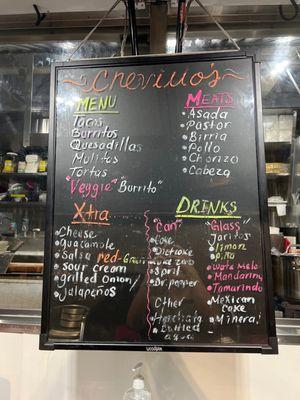 ~ Chevillo's ~
MENU
Tacos
Burritos
Quesadillas
Mulitos
Tortas
"Veggie" "Burrito"
MEATS
Asada
Pastor
Birria
Pollo
Chorizo
Cabeza
Xtra
Cheese
guacamole
Salsa red-Green
sour cream
grilled Onion
Jalapeños
DRINKS
"Can"
Coke
Dietcoke
Sprit
Dr.pepper
Other
Horchata
Bottled
agua
"Glass"
Jaritos
limon
piña
Wate Melo
Mandarin
Tamarindo
Mexican
Coke
Mineral